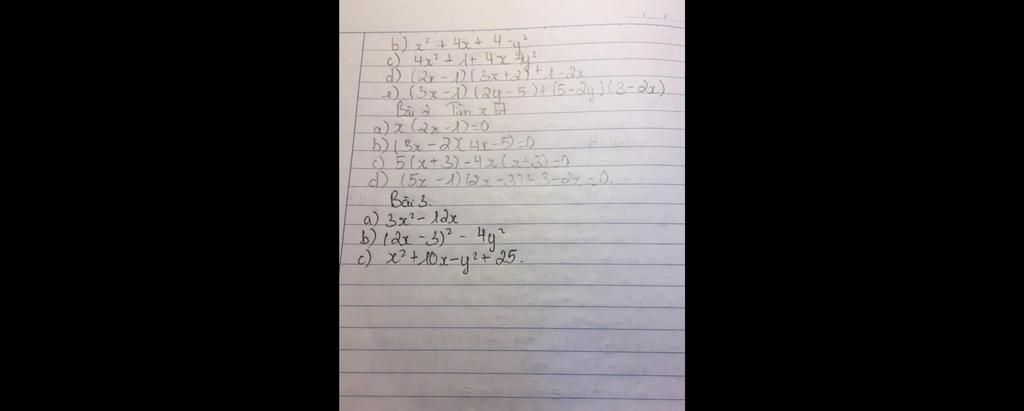 b) x² + 4x + 4 - y²
c) 4x² + 1 + 4x - y²
d) (2x - 1)(3x + 2) + 1 - 2x
e) (3x - 1)(2y - 5) + (5 - 2y)(3 - 2x)
Bài 2 Tìm x bt
a) x(2x - 1) = 0
b) (3x - 2)(4x - 5) = 0
c) 5(x + 3) - 4x(x + 3) = 0
d) (5x - 1)(2x - 3) 3 - 2x = 0.
Bài 3.
a) 3x² - 12x
b) (2x - 3)² - 4y²
c) x² + 10x - y² + 25.